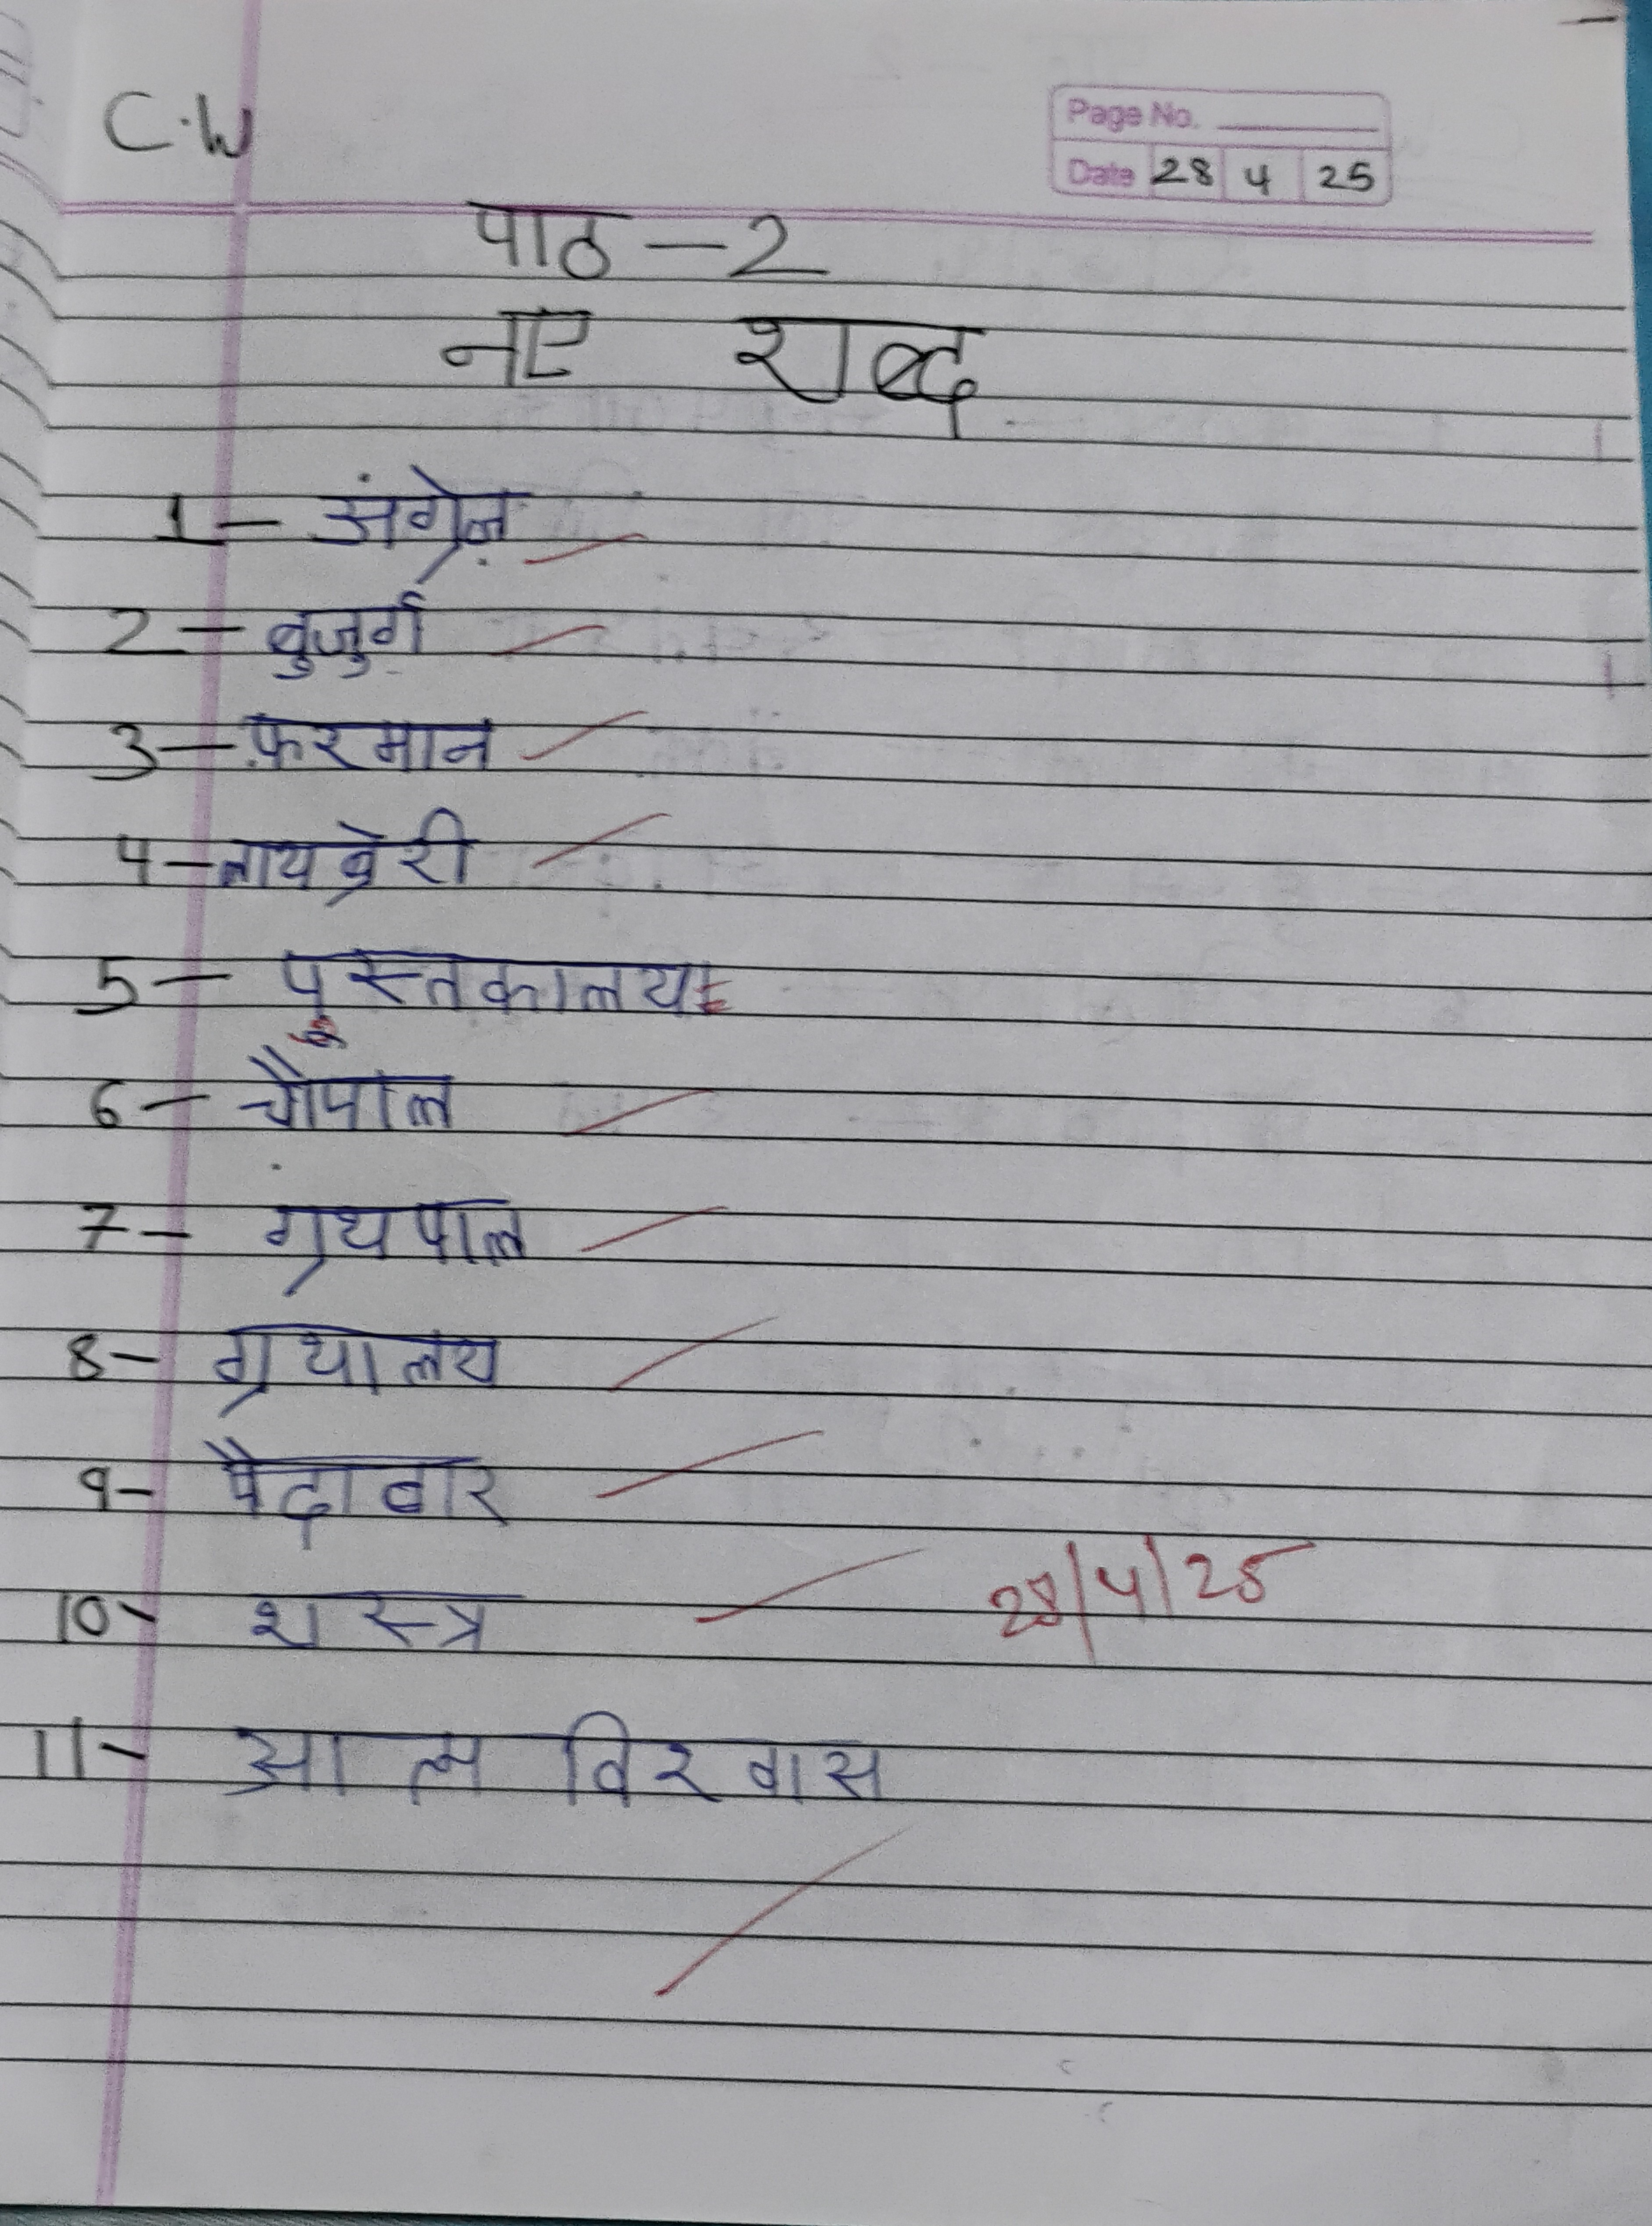 C.W
Page No.
Date 28 4 25
पाठ – 2
नए शब्द
1 – अंग्रेज़
2 – बुजुर्ग
3 – फ़रमान
4 – लायब्रेरी
5 – पुस्तकालय
6 – चौपाल
7 – ग्रंथपाल
8 – ग्रथालय
9 – पैदावार
10 – शस्त्र
28/4/25
11 – आत्म विश्वास